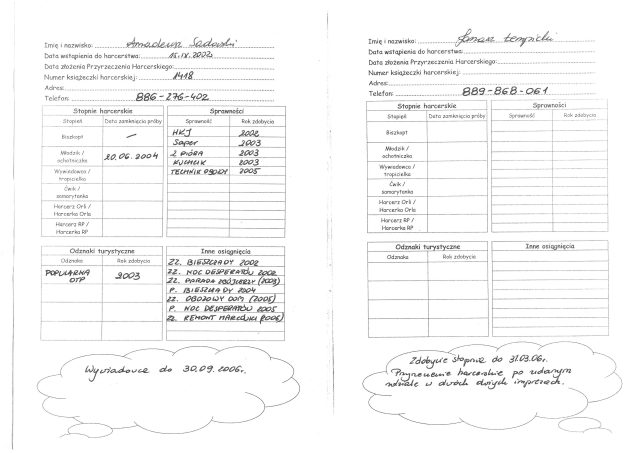 Imię i nazwisko: Amadeusz Sadowski
Data wstąpienia do harcerstwa: 15.IX.2002
Data złożenia Przyrzeczenia Harcerskiego:
Numer książeczki harcerskiej: 1418
Adres:
Telefon: 886-276-402
Stopnie harcerskie
Stopień Data zamknięcia próby
Biszkopt —
Młodzik / ochotniczka 20.06.2004
Wywiadowca / tropicielka
Ćwik / samarytanka
Harcerz Orli / Harcerka Orla
Harcerz RP / Harcerka RP
Sprawności
Sprawność Rok zdobycia
HKJ 2002
Saper 2003
2 PIÓRA 2003
KUCHCIK 2003
TECHNIK OBOZOWY 2005
Odznaki turystyczne
Odznaka Rok zdobycia
POPULARNA OTP 2003
Inne osiągnięcia
ZZ. BIESZCZADY 2002
ZZ. NOC DESPERATÓW 2002
ZZ. PARADA (2003)
P. BIESZCZADY 2004
ZZ. OBOZOWY (2005)
P. NOC DESPERATÓW 2005
ZZ. REMONT HARCÓWKI (2006)
Wywiadowca do 30.09.2006r.
Imię i nazwisko: Łempicki
Data wstąpienia do harcerstwa:
Data złożenia Przyrzeczenia Harcerskiego:
Numer książeczki harcerskiej:
Adres:
Telefon: 889-868-061
Stopnie harcerskie
Stopień Data zamknięcia próby
Biszkopt
Młodzik / ochotniczka
Wywiadowca / tropicielka
Ćwik / samarytanka
Harcerz Orli / Harcerka Orla
Harcerz RP / Harcerka RP
Sprawności
Sprawność Rok zdobycia
Odznaki turystyczne
Odznaka Rok zdobycia
Inne osiągnięcia
Zdobycie stopnia do 31.03.06r.
Przyrzeczenie harcerskie po udanym
udziale w dwóch dużych imprezach.